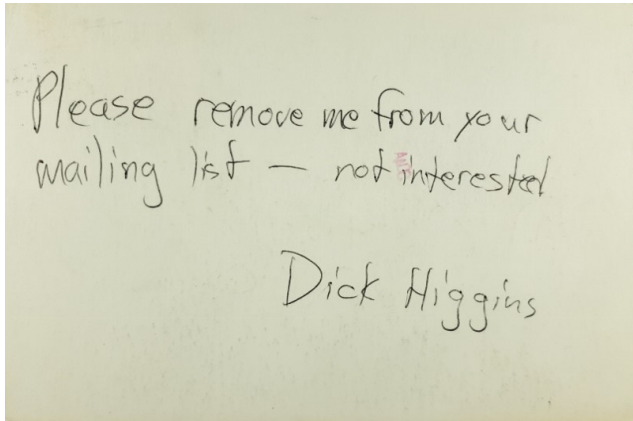 Please remove me from your
mailing list — not interested
Dick Higgins